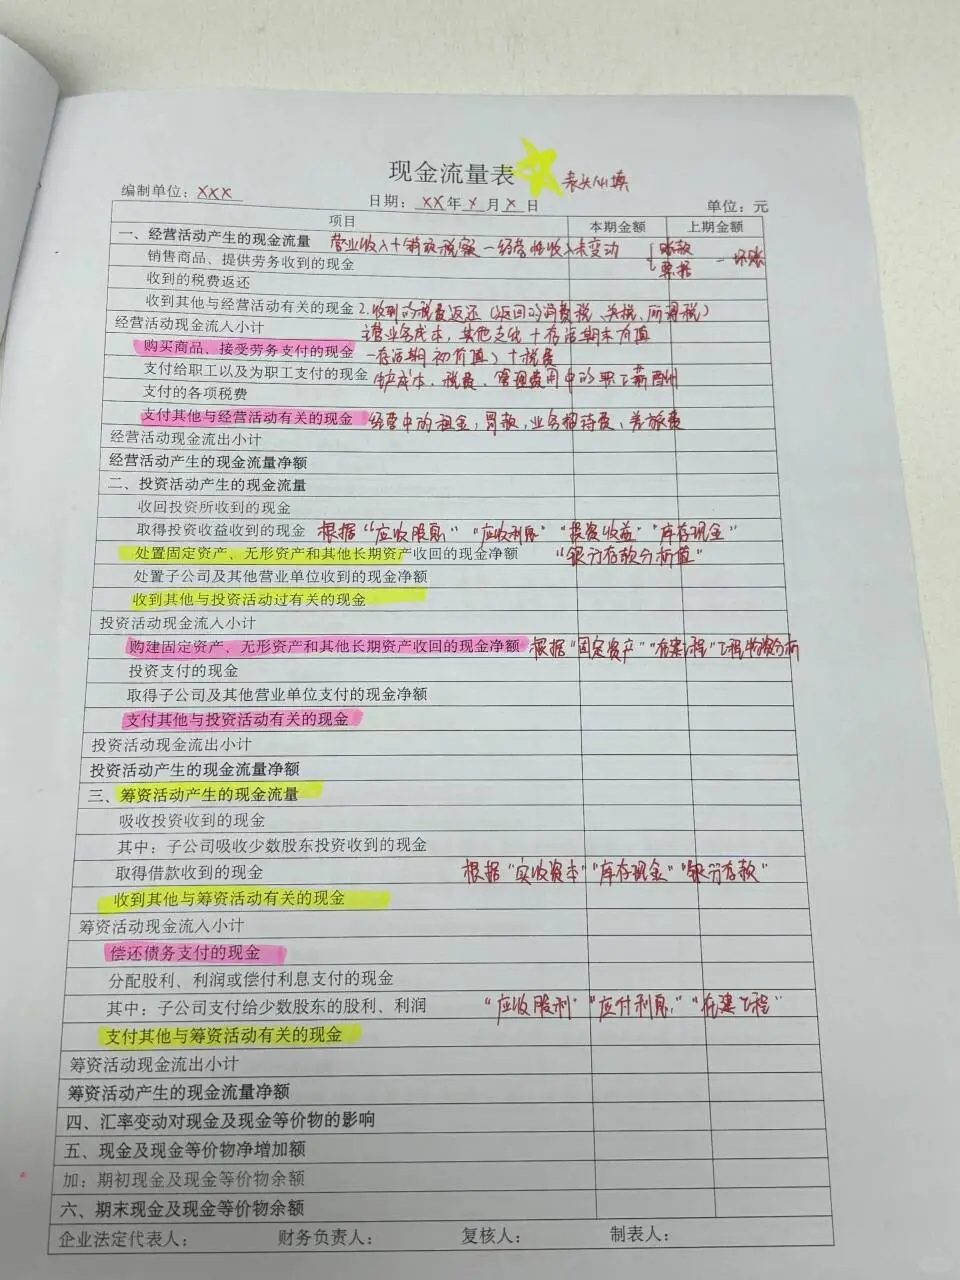 现金流量表 表头必填
编制单位：XXX 日期：XX年X月X日 单位：元
项目 本期金额 上期金额
一、经营活动产生的现金流量 营业收入+销项税额-经营性收入未变动 {账款 票据 -坏账
销售商品、提供劳务收到的现金
收到的税费返还
收到其他与经营活动有关的现金 2.收到的税费返还（返回的消费税、关税、所得税）
经营活动现金流入小计 主营业务成本，其他支出+存活期末价值
购买商品、接受劳务支付的现金 -存活期初价值）+税费
支付给职工以及为职工支付的现金 成本、税费、管理费用中的职工薪酬
支付的各项税费
支付其他与经营活动有关的现金 经营中的租金，罚款，业务招待费、差旅费
经营活动现金流出小计
经营活动产生的现金流量净额
二、投资活动产生的现金流量
收回投资所收到的现金
取得投资收益收到的现金 根据“应收股息”“应收利息”“投资收益”“库存现金”
处置固定资产、无形资产和其他长期资产收回的现金净额 “银行存款分析值”
处置子公司及其他营业单位收到的现金净额
收到其他与投资活动过有关的现金
投资活动现金流入小计
购建固定资产、无形资产和其他长期资产收回的现金净额 根据“固定资产”“在建工程”工程物资分析
投资支付的现金
取得子公司及其他营业单位支付的现金净额
支付其他与投资活动有关的现金
投资活动现金流出小计
投资活动产生的现金流量净额
三、筹资活动产生的现金流量
吸收投资收到的现金
其中：子公司吸收少数股东投资收到的现金
取得借款收到的现金 根据“实收资本”“库存现金”“银行存款”
收到其他与筹资活动有关的现金
筹资活动现金流入小计
偿还债务支付的现金
分配股利、利润或偿付利息支付的现金
其中：子公司支付给少数股东的股利、利润 “应收股利”“应付利息”“在建工程”
支付其他与筹资活动有关的现金
筹资活动现金流出小计
筹资活动产生的现金流量净额
四、汇率变动对现金及现金等价物的影响
五、现金及现金等价物净增加额
加：期初现金及现金等价物余额
六、期末现金及现金等价物余额
企业法定代表人： 财务负责人： 复核人： 制表人：